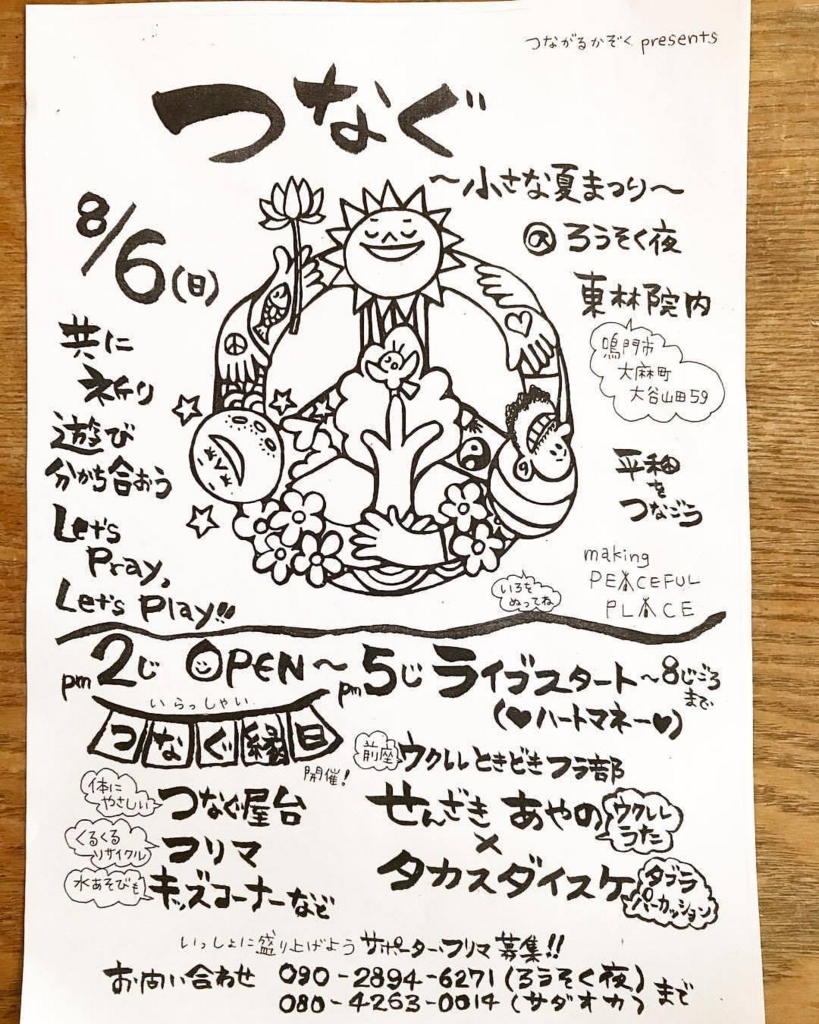 つながるかぞく presents
つなぐ
～小さな夏まつり～
8/6(日)
@ ろうそく夜
東林院内
鳴門市
大麻町
大谷山田59
共に
祈り
遊び
分かち合おう
Let's
Pray,
Let's Play!!
平和
を
つなごう
making
PEACEFUL
PLACE
いろを
ぬってね
pm 2じ OPEN～pm 5じ ライブスタート～8じごろまで
(♥ハートマネー♥)
いらっしゃい
つなぐ縁日
開催!
前座 ウクレレときどきフラ部
体に
やさしい
つなぐ屋台
せんざき あやの
ウクレレ
うた
×
くるくる
リサイクル
フリマ
タカスダイスケ
タブラ
パーカッション
水あそびも
キッズコーナーなど
いっしょに盛り上げよう サポーター・フリマ 募集!!
お問い合わせ 090-2894-6271 (ろうそく夜)
080-4263-0014 (サダオカ) まで